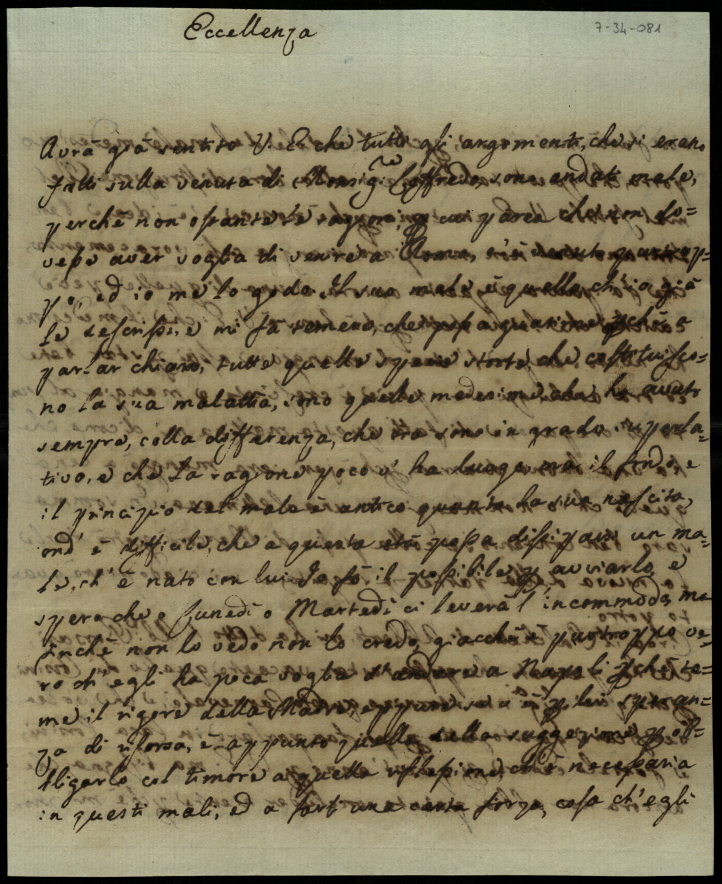 Eccellenza
7-34-081
Avrà già sentito V. E. che tutti gli argomenti, che si erano
fatti sulla venuta di Monsig.r Loffredo, sono andati male,
perchè non ostante le ragioni, p cui parea che non do=
vesse aver voglia di venire a Roma, è venuto purtrop=
po, ed io me lo godo. Il suo male è quello ch'io già
le descrissi, e mi fà temere, che possa guarire pchè a
parlar chiaro, tutte quelle specie storte, che costituisco=
no la sua malattia, sono quelle medesime, che ha avuto
sempre, colla differenza, che ora sono in grado superla=
tivo, e che la ragione poco vi ha luogo, ma il fondo, e
il principio del male è antico quanto la sua nascita,
ond' è difficile, che a questa età possa dissiparsi un ma=
le, ch' è nato con lui. Io fò il possibile p avviarlo, e
spero che o Lunedì o Martedì ci leverà l'incommodo, ma
finchè non lo vedo non lo credo, giacchè è purtroppo ve=
ro ch' egli ha poca voglia d'andare a Napoli pchè te=
me il rigore della Madre, eppure se v'è p lui speran=
za di risorsa, è appunto quella della suggezione p ob=
bligarlo col timore a quella riflessione, ch'è necessaria
in questi mali, ed a farsi una certa forza, cosa ch'egli